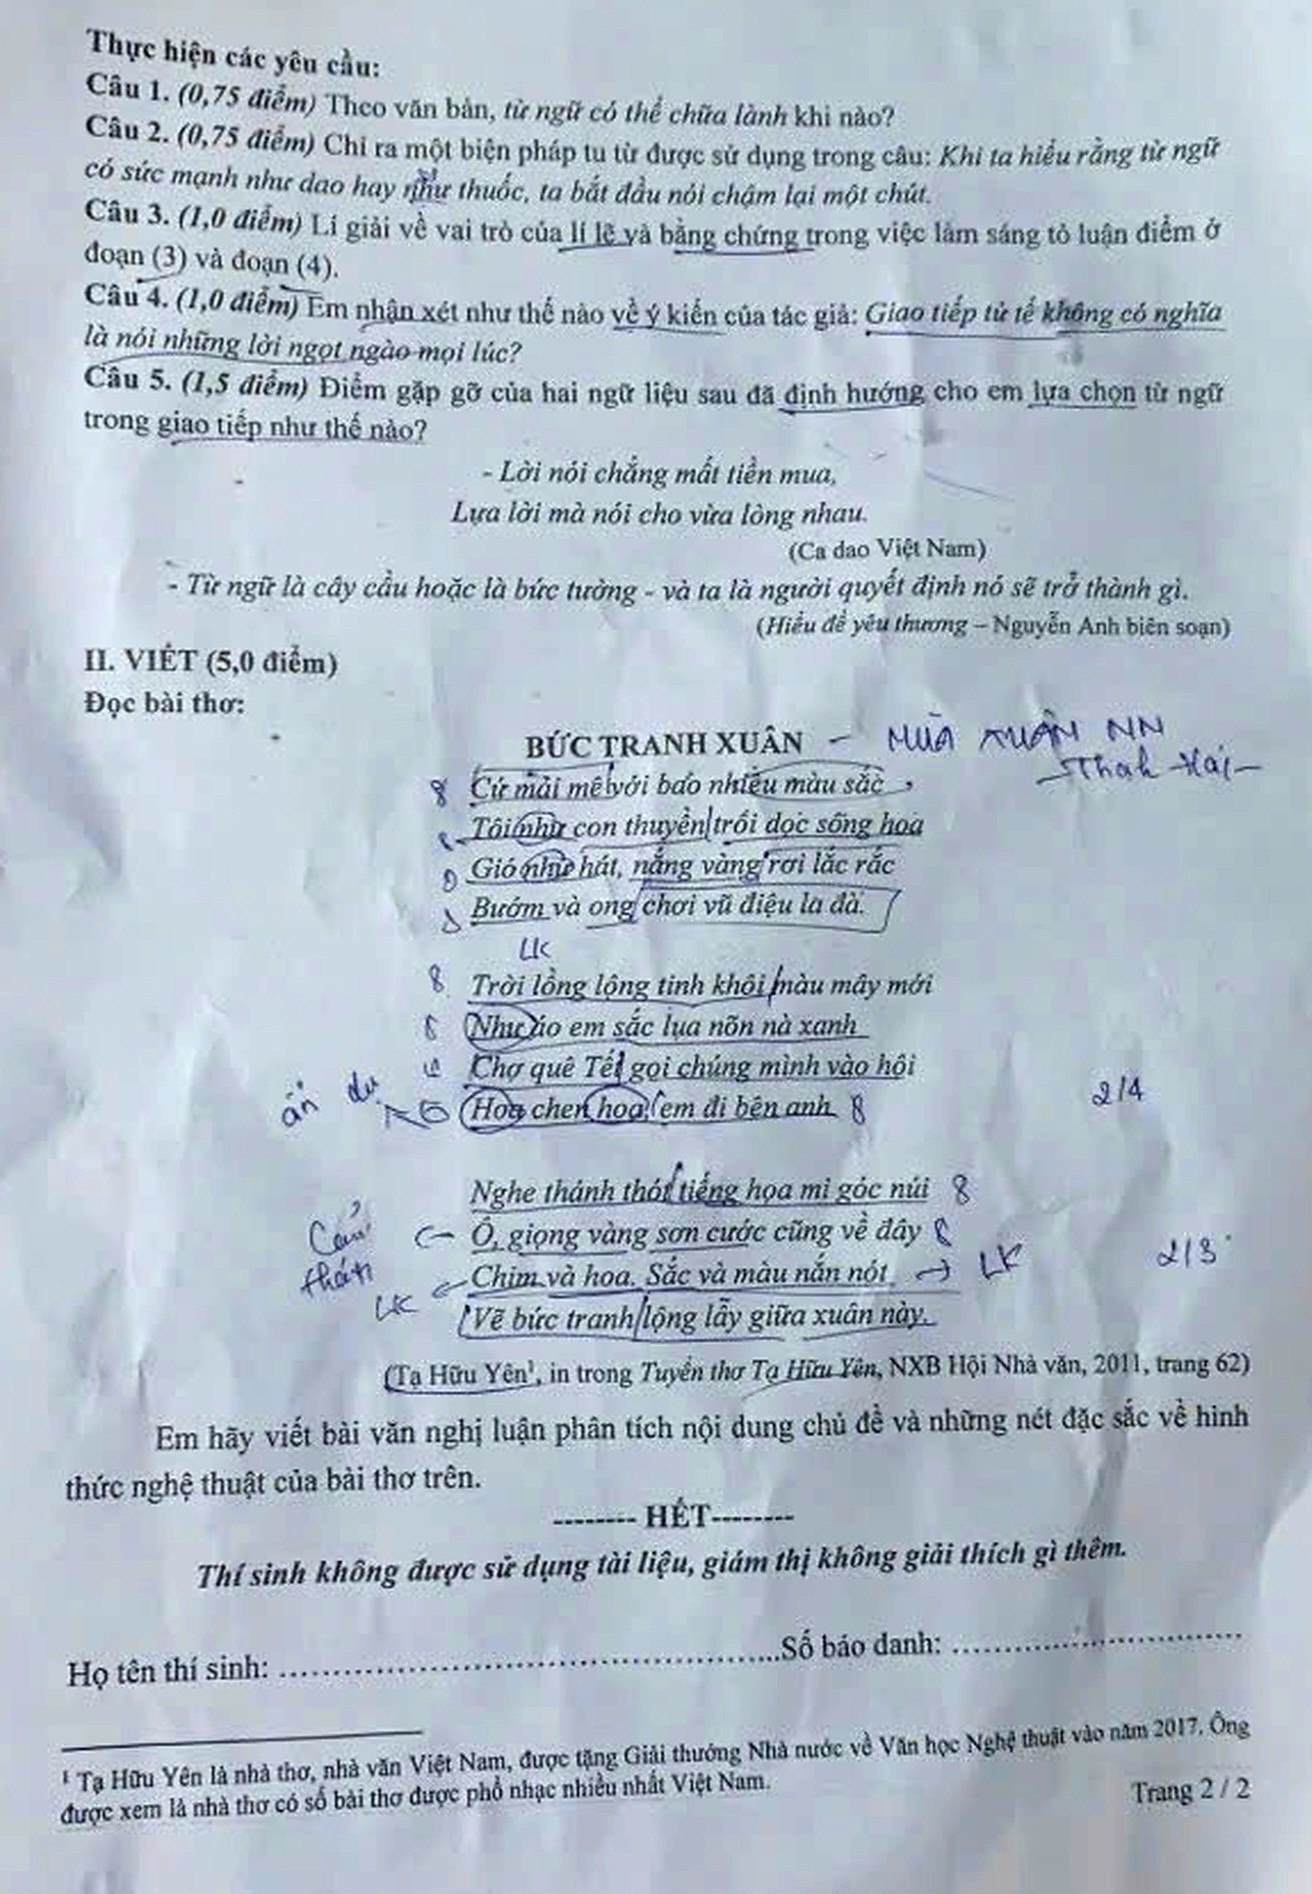 Thực hiện các yêu cầu:
Câu 1. (0,75 điểm) Theo văn bản, từ ngữ có thể chữa lành khi nào?
Câu 2. (0,75 điểm) Chỉ ra một biện pháp tu từ được sử dụng trong câu: Khi ta hiểu rằng từ ngữ
có sức mạnh như dao hay như thuốc, ta bắt đầu nói chậm lại một chút.
Câu 3. (1,0 điểm) Lí giải về vai trò của lí lẽ và bằng chứng trong việc làm sáng tỏ luận điểm ở
đoạn (3) và đoạn (4).
Câu 4. (1,0 điểm) Em nhận xét như thế nào về ý kiến của tác giả: Giao tiếp tử tế không có nghĩa
là nói những lời ngọt ngào mọi lúc?
Câu 5. (1,5 điểm) Điểm gặp gỡ của hai ngữ liệu sau đã định hướng cho em lựa chọn từ ngữ
trong giao tiếp như thế nào?
- Lời nói chẳng mất tiền mua,
Lựa lời mà nói cho vừa lòng nhau.
(Ca dao Việt Nam)
- Từ ngữ là cây cầu hoặc là bức tường - và ta là người quyết định nó sẽ trở thành gì.
(Hiểu để yêu thương – Nguyễn Anh biên soạn)
II. VIẾT (5,0 điểm)
Đọc bài thơ:
BỨC TRANH XUÂN - MÙA XUÂN NN
Thah Hải -
8 Cứ mải mê với bao nhiêu màu sắc
Tôi như con thuyền trôi dọc sông hoa
Gió như hát, nắng vàng rơi lắc rắc
Bướm và ong chơi vũ điệu la đà.
LK
8 Trời lồng lộng tinh khôi màu mây mới
Như áo em sắc lụa nõn nà xanh
Chợ quê Tết gọi chúng mình vào hội
ẩn dụ Hoa chen hoa, em đi bên anh 8
2/4
Nghe thánh thót tiếng họa mi góc núi 8
Cảm thán Ô, giọng vàng sơn cước cũng về đây
LK Chim và hoa. Sắc và màu nắn nót LK 2/3
Vẽ bức tranh lộng lẫy giữa xuân này.
(Tạ Hữu Yên¹, in trong Tuyển thơ Tạ Hữu Yên, NXB Hội Nhà văn, 2011, trang 62)
Em hãy viết bài văn nghị luận phân tích nội dung chủ đề và những nét đặc sắc về hình
thức nghệ thuật của bài thơ trên.
-------- HẾT--------
Thí sinh không được sử dụng tài liệu, giám thị không giải thích gì thêm.
Họ tên thí sinh: ........................................Số báo danh: ........................
¹ Tạ Hữu Yên là nhà thơ, nhà văn Việt Nam, được tặng Giải thưởng Nhà nước về Văn học Nghệ thuật vào năm 2017. Ông
được xem là nhà thơ có số bài thơ được phổ nhạc nhiều nhất Việt Nam.
Trang 2 / 2